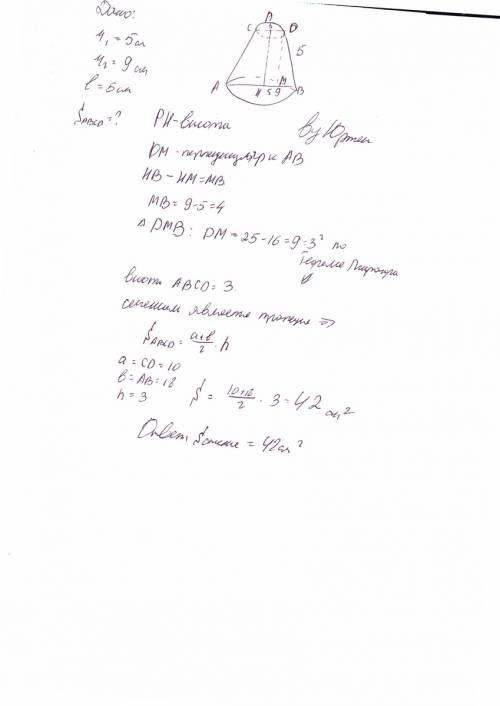 Дано:
r₁ = 5 см
r₂ = 9 см
l = 5 см
S ABCD = ?
P
C D
5
A H 5 9 M B
PH - высота
by Юртен
DM - перпендикуляр к AB
HB - HM = MB
MB = 9 - 5 = 4
△DMB: DM = 25 - 16 = 9 = 3² по
Теореме Пифагора
высота ABCD = 3
сечением является трапеция ⇒
S ABCD = (a+b)/2 · h
a = CD = 10
b = AB = 18
h = 3
S = (10+18)/2 · 3 = 42 см²
Ответ: S сечение = 42 см²